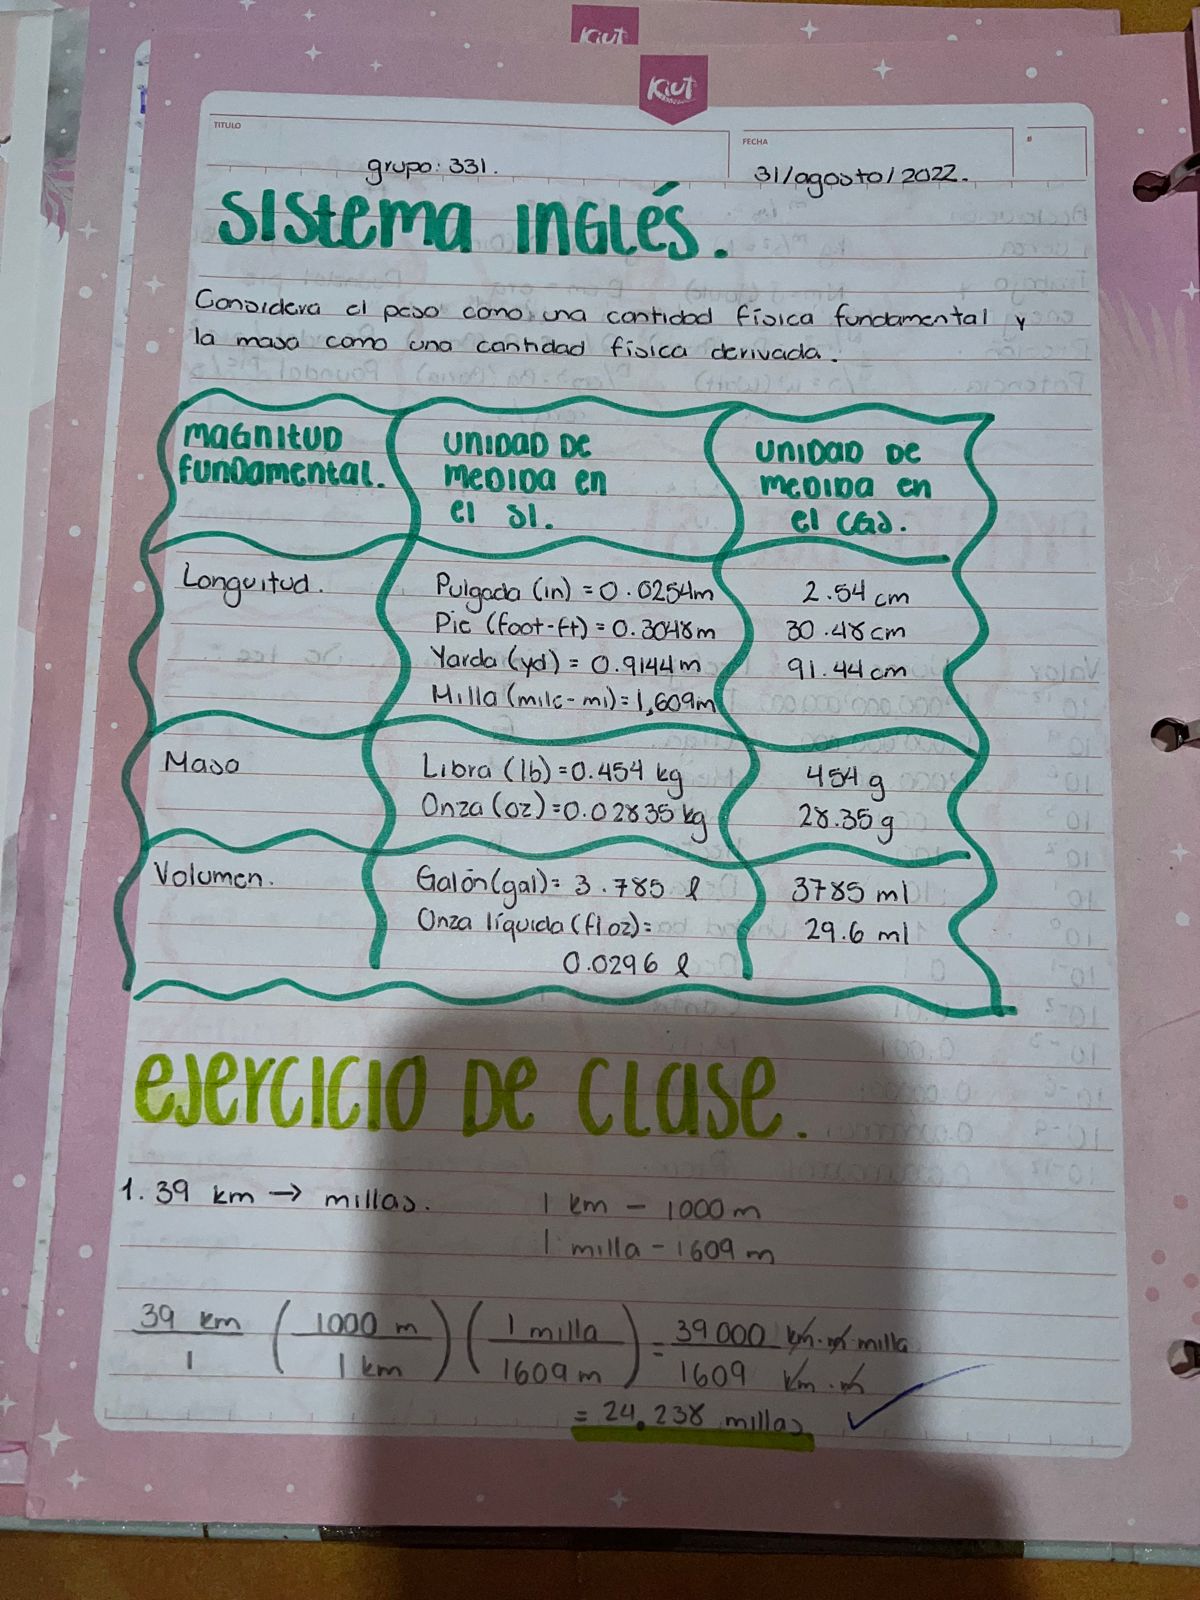 Kiut
Kiut
TITULO
FECHA
grupo: 331.
31/agosto/2022.
Sistema Inglés.
Considera el peso como una cantidad física fundamental y
la masa como una cantidad física derivada.
Magnitud
fundamental.
Unidad de
medida en
el SI.
Unidad de
medida en
el CGS.
Longuitud.
Pulgada (in) = 0.0254m
2.54 cm
Pie (foot-ft) = 0.3048m
30.48 cm
Yarda (yd) = 0.9144 m
91.44 cm
Milla (mile-mi) = 1,609m
Masa
Libra (lb) = 0.454 kg
454 g
Onza (oz) = 0.02835 kg
28.35 g
Volumen.
Galón (gal) = 3.785 l
3785 ml
Onza líquida (fl oz) =
29.6 ml
0.0296 l
Ejercicio de clase.
1. 39 km → millas.
1 km - 1000 m
1 milla - 1609 m
39 km / 1 (1000 m / 1 km) (1 milla / 1609 m) = 39 000 km·m·milla / 1609 km·m
= 24.238 millas